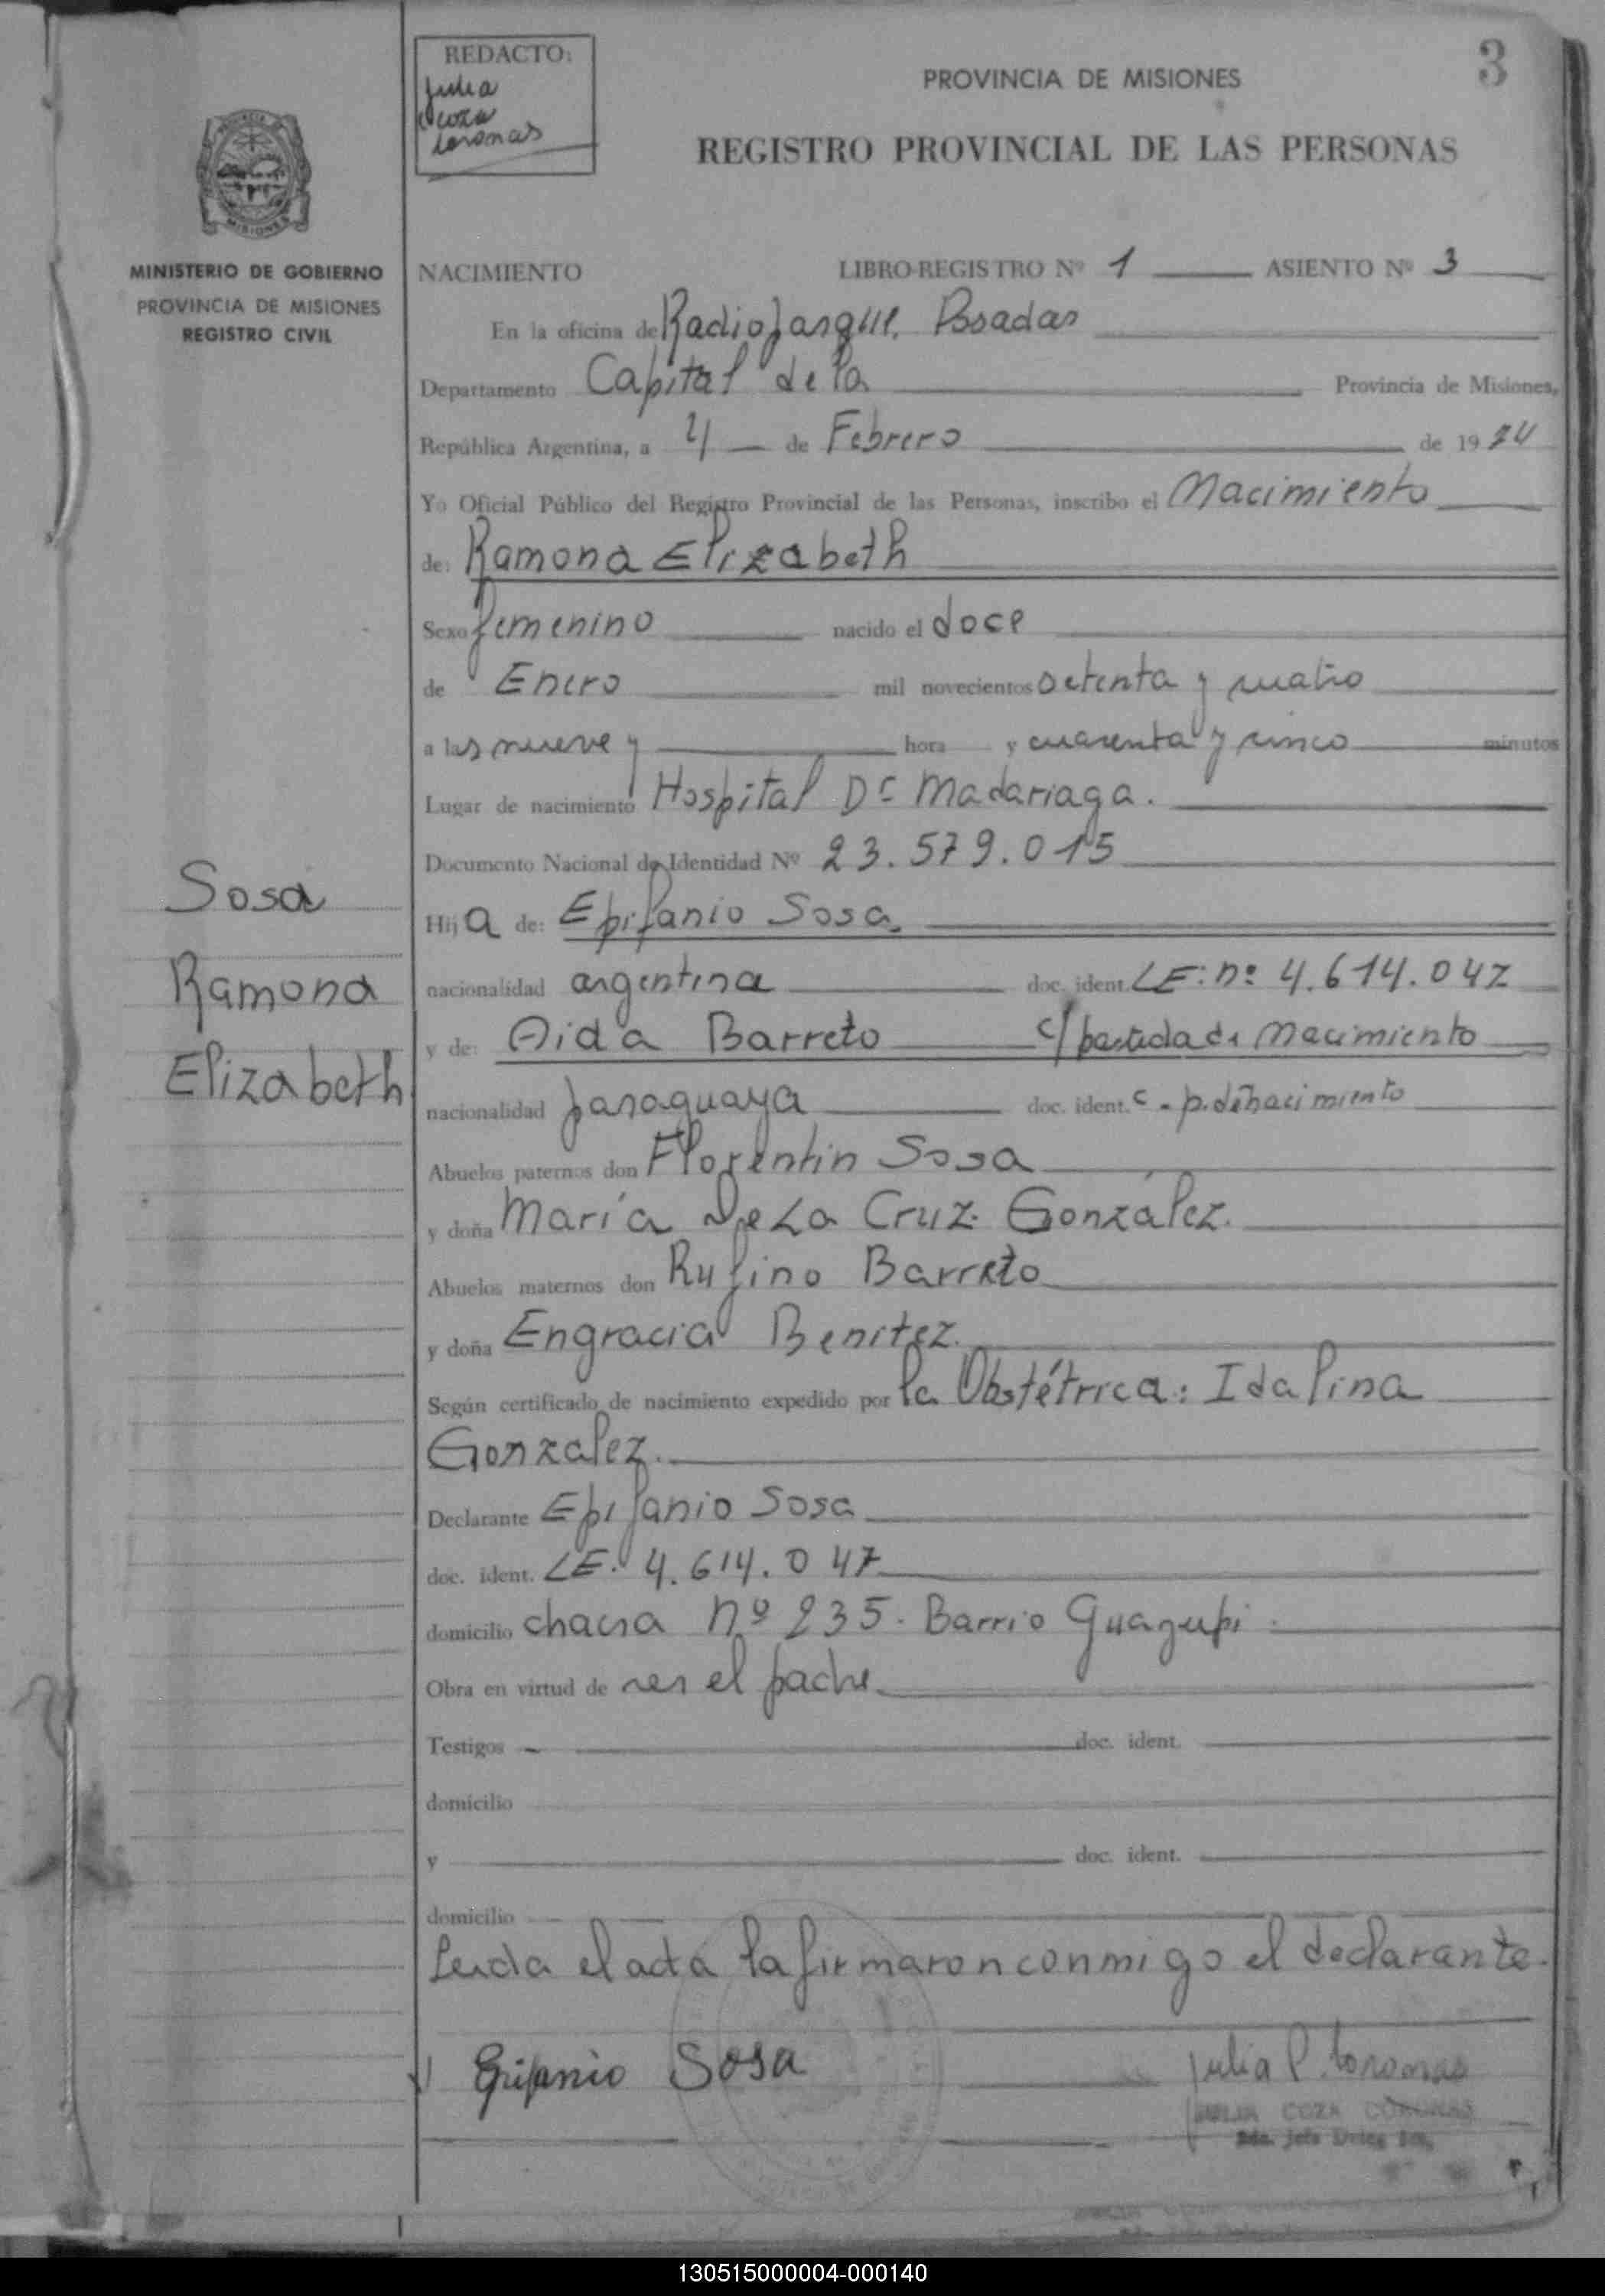 3
REDACTO:
Julia
Coza
Coronas
PROVINCIA DE MISIONES
REGISTRO PROVINCIAL DE LAS PERSONAS
MISIONES
MINISTERIO DE GOBIERNO
PROVINCIA DE MISIONES
REGISTRO CIVIL
NACIMIENTO LIBRO-REGISTRO Nº 1 ASIENTO Nº 3
En la oficina de Radio Posadas
Departamento Capital de la Provincia de Misiones,
República Argentina, a 4 de Febrero de 1974
Yo Oficial Público del Registro Provincial de las Personas, inscribo el Nacimiento
de: Ramona Elizabeth
Sexo femenino nacido el doce
de Enero mil novecientos setenta y cuatro
a las nueve y hora y cuarenta y cinco minutos
Lugar de nacimiento Hospital Dr Madariaga.
Documento Nacional de Identidad Nº 23.579.015
Hija de: Epifanio Sosa.
nacionalidad argentina doc. ident. LE: nº 4.614.047
y de: Aida Barreto c/ partida de Nacimiento
nacionalidad paraguaya doc. ident. c. p. de nacimiento
Abuelos paternos don Florentin Sosa
y doña María De La Cruz González.
Abuelos maternos don Rufino Barreto
y doña Engracia Benitez.
Según certificado de nacimiento expedido por la Obstétrica: Idalina
Gonzalez.
Declarante Epifanio Sosa
doc. ident. LE. 4.614.047
domicilio chacra nº 235. Barrio Guazupi.
Obra en virtud de ser el padre.
Testigos doc. ident.
domicilio
y doc. ident.
domicilio
Leida el acta la firmaron conmigo el declarante.
Epifanio Sosa
Julia P. Coronas
JULIA COZA CORONAS
Sosa
Ramona
Elizabeth
130515000004-000140